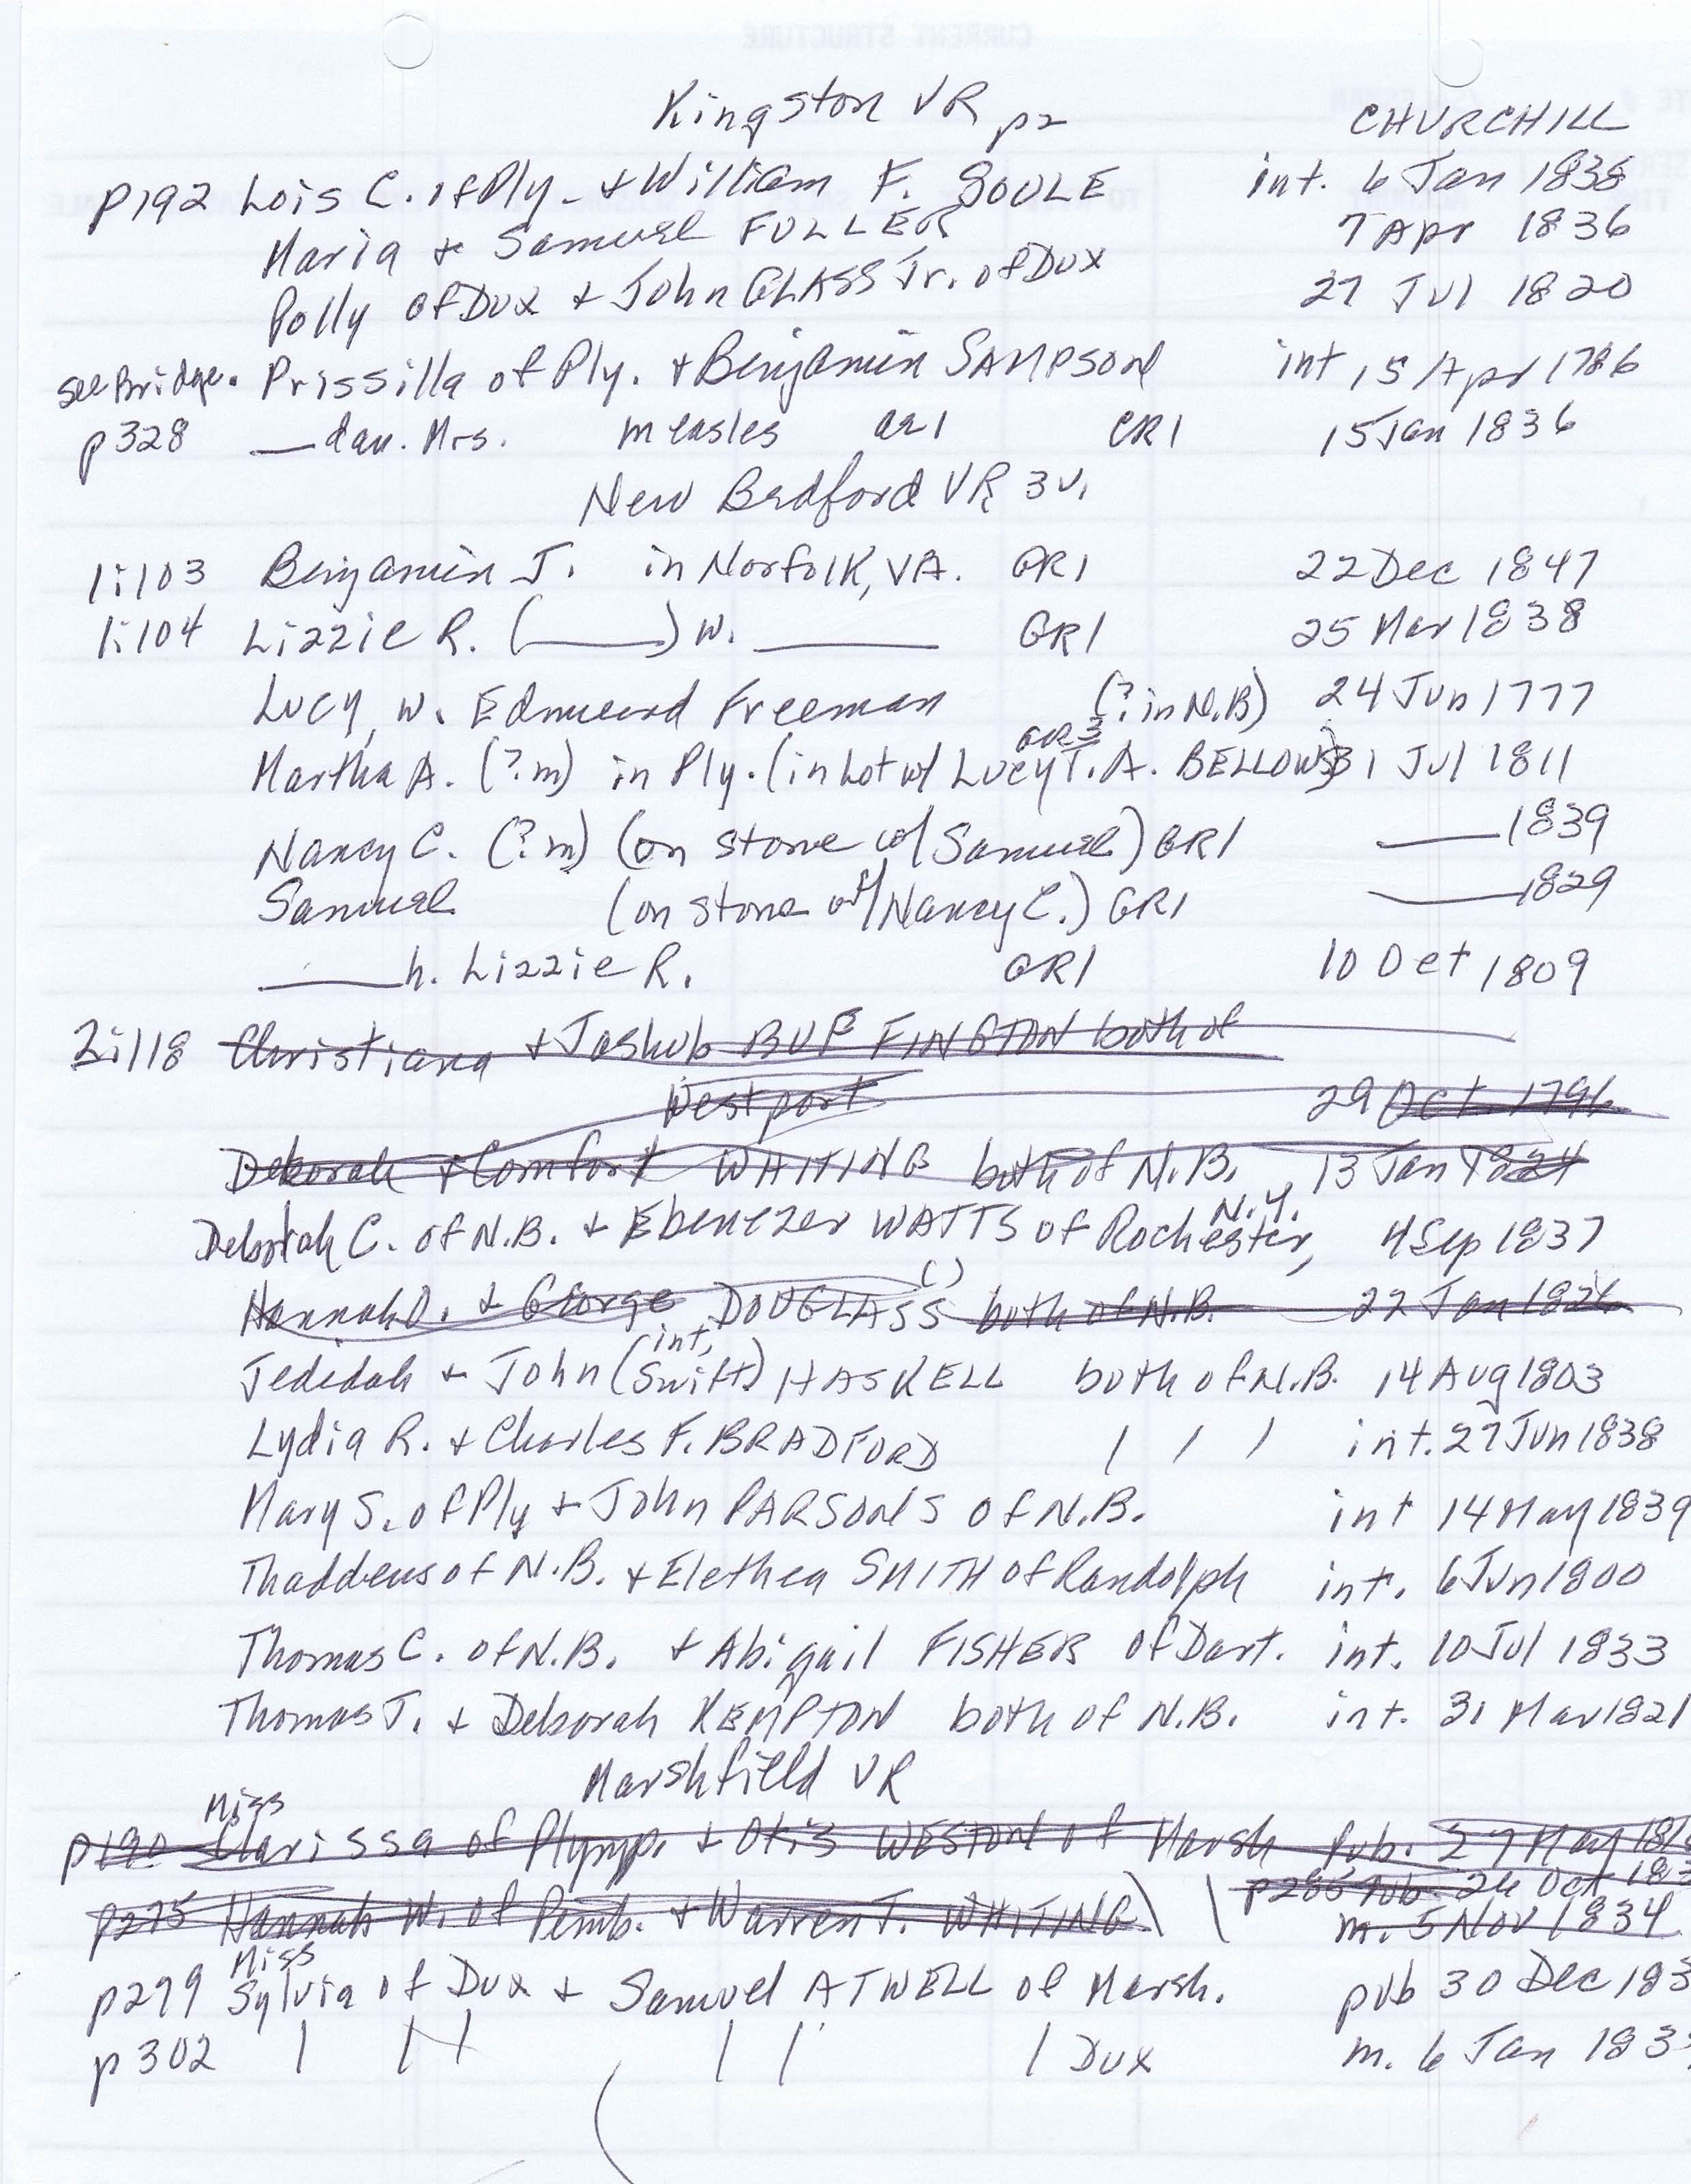 Kingston VR p2 CHURCHILL
p192 Lois C. of Ply. + William F. SOULE int. 6 Jan 1838
Maria + Samuel FULLER 7 Apr 1836
Polly of Dux + John GLASS Jr. of Dux 27 Jul 1820
see Bridge. Prissilla of Ply. + Benjamin SAMPSON int 15 Apr 1786
p328 — dau. Mrs. measles CR1 15 Jan 1836
New Bedford VR 3v.
1:103 Benjamin J. in Norfolk, VA. GR1 22 Dec 1847
1:104 Lizzie R. (____) w. ____ GR1 25 Mar 1838
Lucy, w. Edmund Freeman (? in N.B) 24 Jun 1777
GR3
Martha A. (?m) in Ply. (in Lot w/ Lucy T. A. BELLOWS) 31 Jul 1811
Nancy C. (?m) (on stone w/ Samuel) GR1 ____ 1839
Samuel (on stone w/ Nancy C.) GR1 ____ 1829
____ h. Lizzie R. GR1 10 Oct 1809
2:118 Christiana + Jashub BUFFINGTON both of
Westport 29 Oct. 1796
Deborah + Comfort WHITING both of N.B. 13 Jan 1824
N.Y.
Deborah C. of N.B. + Ebenezer WATTS of Rochester, 4 Sep 1837
()
Hannah D. + George DOUGLASS both of N.B. 22 Jan 1826
(int.
Jedidah + John Swift) HASKELL both of N.B. 14 Aug 1803
Lydia R. + Charles F. BRADFORD / / / int. 27 Jun 1838
Mary S. of Ply + John PARSONS of N.B. int 14 May 1839
Thaddeus of N.B. + Elethea SMITH of Randolph int. 6 Jun 1800
Thomas C. of N.B. + Abigail FISHER of Dart. int. 10 Jul 1833
Thomas J. + Deborah KEMPTON both of N.B. int. 31 Mar 1821
Marshfield VR
Miss
p190 Clarissa of Plymp. + Otis WESTON of Marsh Pub. 27 May 18
p286 Pub. 24 Oct 183
p275 Hannah W. of Pemb. + Warren T. WHITING m. 5 Nov 1834
Miss
p299 Sylvia of Dux + Samuel ATWELL of Marsh. pub 30 Dec 183
p302 / / / / / / Dux m. 6 Jan 183